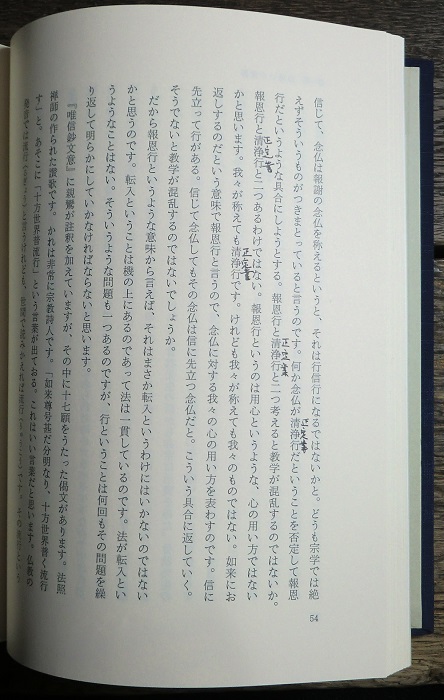 信じて、念仏は報謝の念仏を称えるというと、それは行信行になるではないかと。どうも宗学では絶
えずそういうものがつきまとっていると言うのです。何か念仏が清浄行だということを否定して報恩
行だというような具合にしようとする。報恩行と清浄行と二つ考えると教学が混乱するのではないか。
報恩行と清浄行と二つあるわけではない。報恩行というのは用心というような、心の用い方ではない
かと思います。我々が称えても清浄行です。けれども我々が称えても我々のものではない。如来にお
返しするのだという意味で報恩行と言うので、念仏に対する我々の心の用い方を表わすのです。信に
先立って行がある。信じて念仏してもその念仏は信に先立つ念仏だと。こういう具合に返していく。
そうでないと教学が混乱するのではないでしょうか。
だから報恩行というような意味から言えば、それはまさか転入というわけにはいかないのではない
かと思うのです。転入ということは機の上にあるのであって法は一貫しているのです。法が転入とい
うようなことはない。そういうような問題も一つあるのですが、行ということは何回もその問題を繰
り返して明らかにしていかなければならないと思います。
『唯信鈔文意』に親鸞が註釈を加えていますが、その中に十七願をうたった偈文があります。法照
禅師の作られた讃歌です。かれは非常に宗教詩人です。「如来尊号甚だ分明なり、十方世界普く流行
す」と。あそこに「十方世界普流行」という言葉が出ておる。これはいい言葉だと思います。仏教の
正定業
正定業
正定業
正定業
54